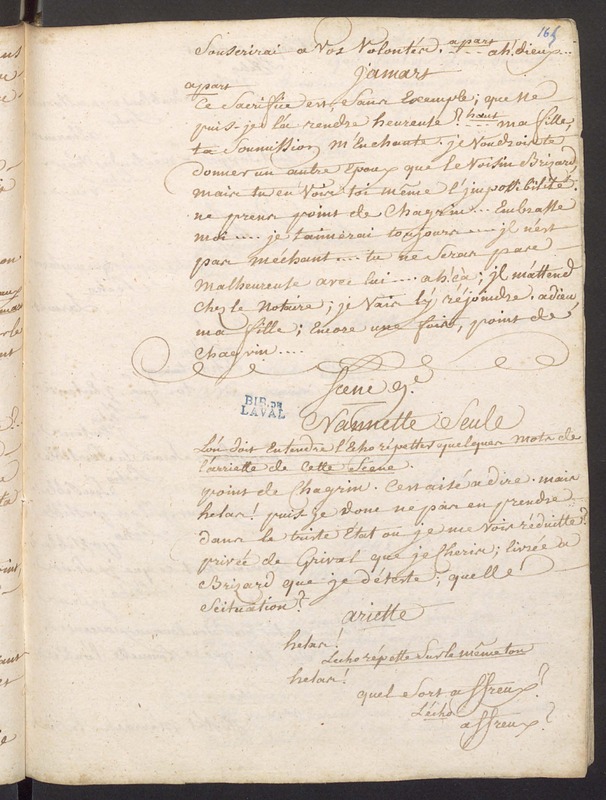 165
Souscrirai a Vos Volontés, apart ah! dieux...
Jamart
apart
Ce Sacrifice est Sans Exemple; que ne
puis-je la rendre heureuse? haut ma fille,
ta Soumission m'Enchante. je Voudrois te
donner un autre Epoux que le Voisin Brizard,
mais tu en Vois toi même l'impossibilité.
ne prens point de Chagrin... Embrasse
moi.... je t'aimerai toujours.... il n'est
pas mechant.... tu ne Seras pas
Malheureuse avec lui.... ah ça; il m'attend
chez le Notaire; je Vais l'y réjoindre. adieu,
ma fille; Encore une fois, point de
Chagrin....
Scene 9.e
BIB. DE
LAVAL
Nannette Seule
L'on doit Entendre l'Echo répetter quelques mots de
l'ariette de Cette Scene.
point de Chagrin. C'est aisé a dire. mais
helas! puis-je donc ne pas en prendre
dans le triste Etat ou je me Vois réduitte?
privée de Grival que je Cheris; livrée a
Brizard que je déteste; quelle
Scituation?
ariette
helas!
L'echo répette Sur le même ton
helas!
quel Sort affreux?
L'écho
affreux?